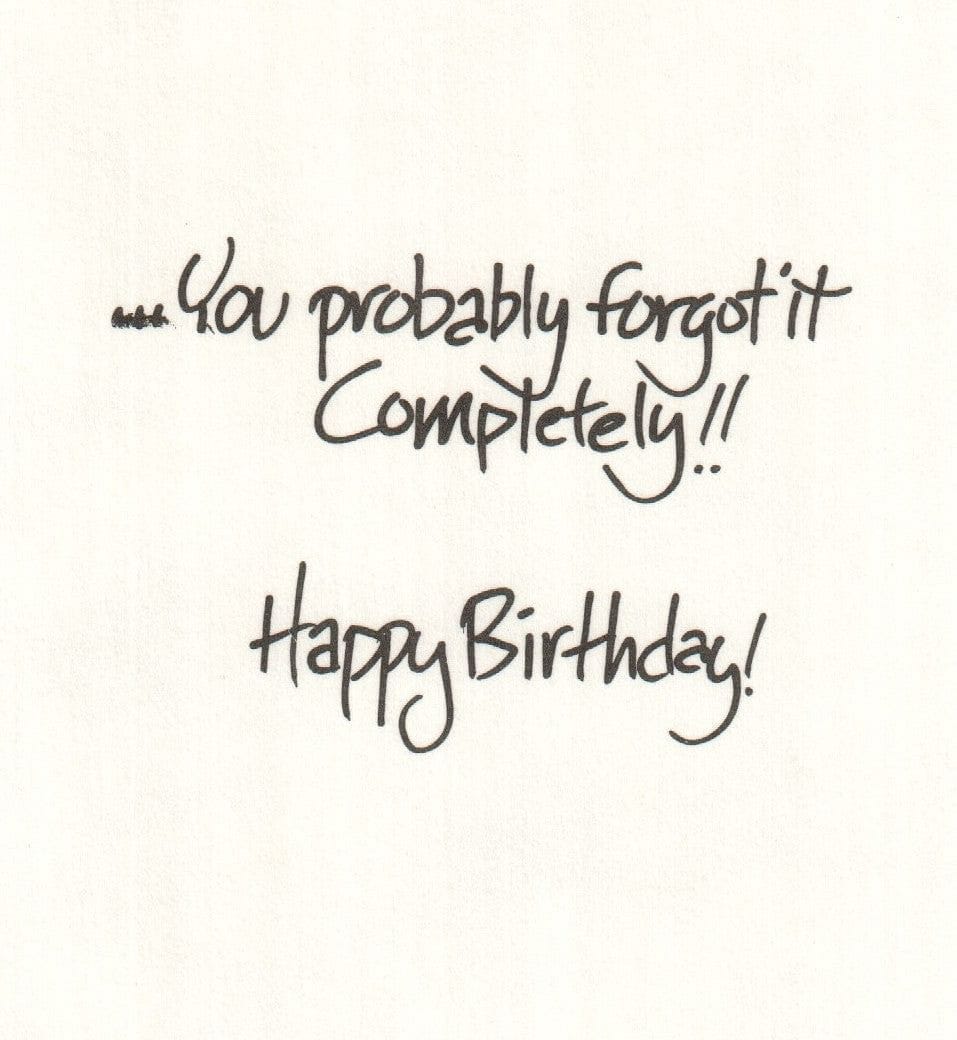 ...You probably forgot it
Completely!!
Happy Birthday!